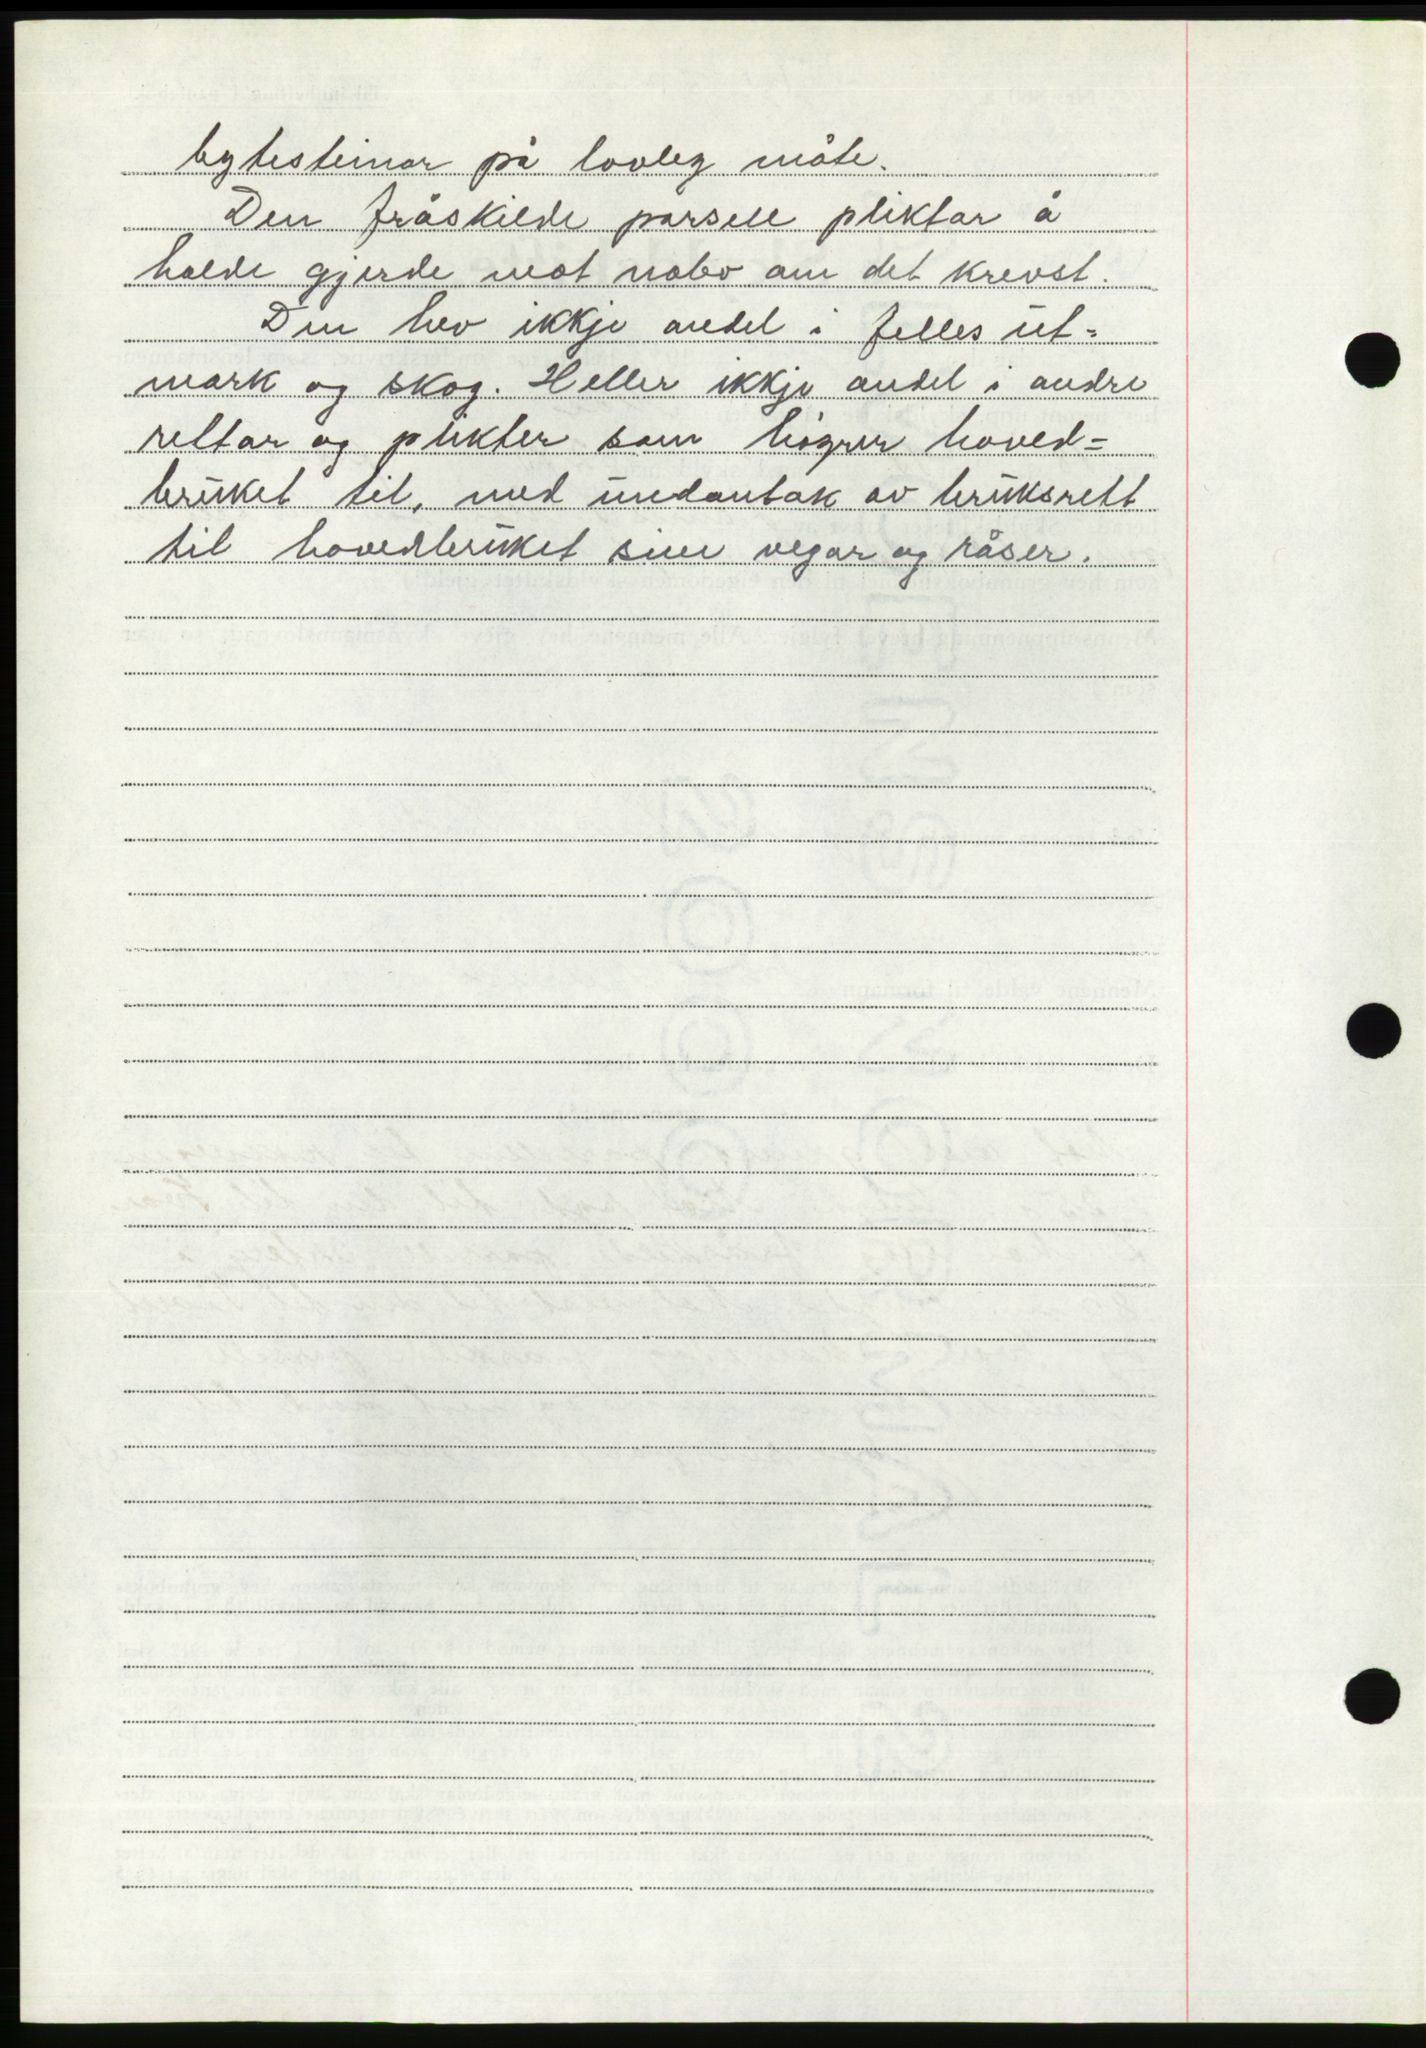 bytesteinar på lovleg måte.
Den fråskilde parsell pliktar å
halde gjerde mot nabo om det krevst.
Den hev ikkje andel i felles ut=
mark og skog. Heller ikkje andel i andre
rettar og plikter som høgrer hoved=
bruket til, med undantak av bruksrett
til hovedbruket sine vegar og råser.